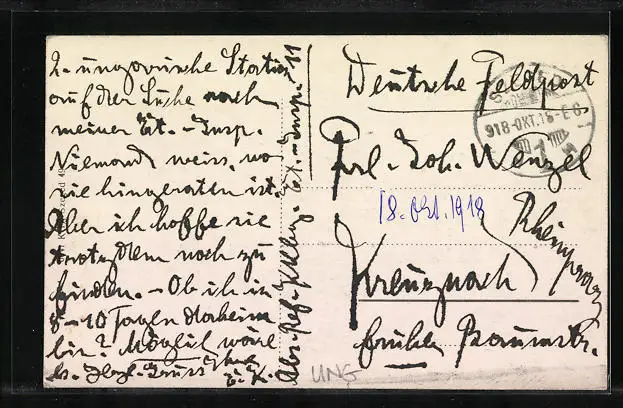 2. ungarische Station
auf der Suche nach
meiner Et. - Insp.
Niemand weiss, wo
sie hingeraten ist.
Aber ich hoffe sie
trotzdem noch zu
finden. - Ob ich in
8-10 Tagen daheim
bin? Möglich wäre
es. Herzl. Gruss
Et. - Insp. 11
Deutsche Feldpost
918-OKT.18-E 6
Frl. Joh. Wenzel
18. Okt. 1918
Rheinprov.
Kreuznach
frühere Baumstr.
UNG